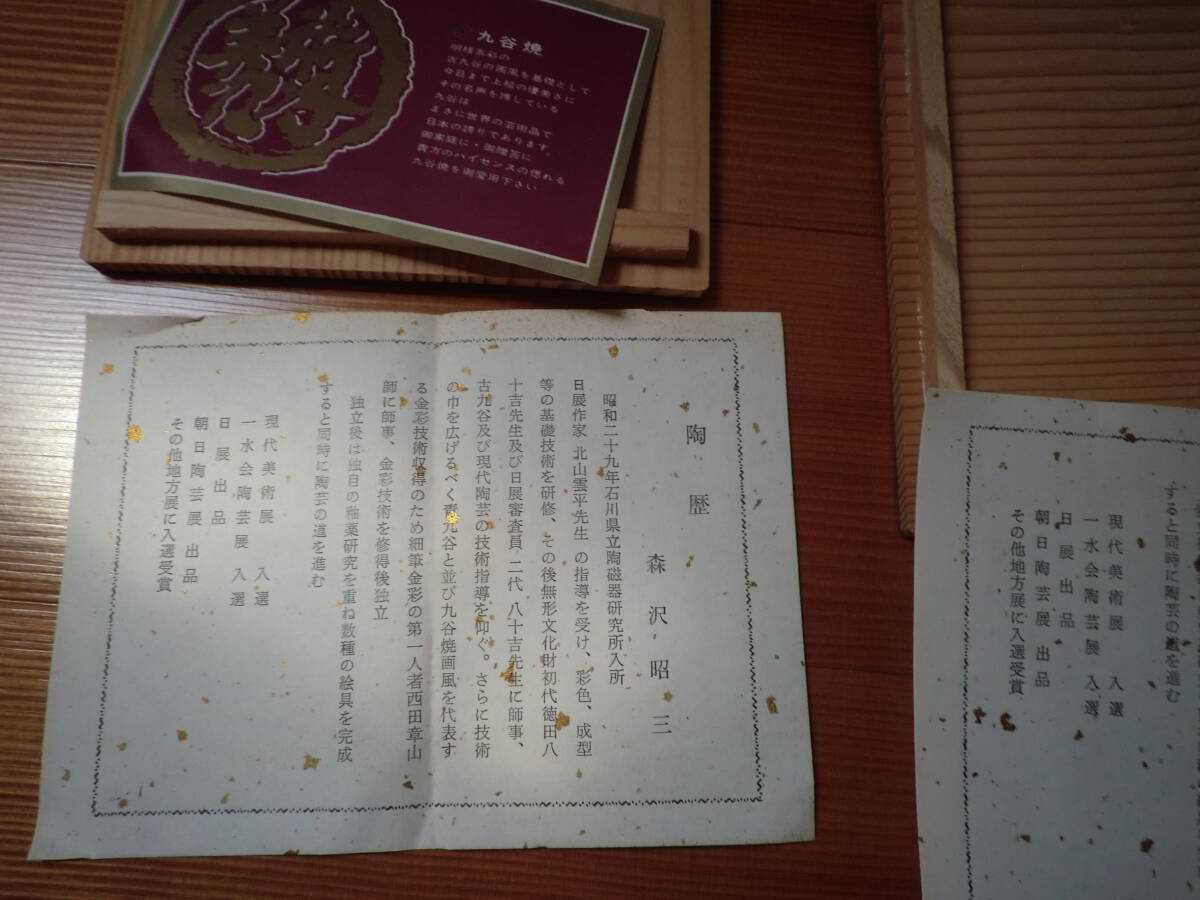 九谷焼
明様五彩の
古九谷の画風を基礎として
今日まで上絵の優美さに
その名声を博している
九谷は
まさに世界の芸術品で
日本の誇りであります。
御家庭に・御贈答に
貴方のハイセンスの惚れる
九谷焼を御愛用下さい
陶歴
森沢昭三
昭和二十九年石川県立陶磁器研究所入所
日展作家 北山雲平先生 の指導を受け、彩色、成型
等の基礎技術を研修、その後無形文化財初代徳田八
十吉先生及び日展審査員、二代 八十吉先生に師事、
古九谷及び現代陶芸の技術指導を仰ぐ。さらに技術
の巾を広げるべく青九谷と並び九谷焼画風を代表す
る金彩技術収得のため細筆金彩の第一人者西田章山
師に師事、金彩技術を修得後独立
独立後は独自の釉薬研究を重ね数種の絵具を完成
すると同時に陶芸の道を進む
現代美術展 入選
一水会陶芸展 入選
日展出品
朝日陶芸展 出品
その他地方展に入選受賞
すると同時に陶芸の道を進む
現代美術展 入選
一水会陶芸展 入選
日展出品
朝日陶芸展 出品
その他地方展に入選受賞